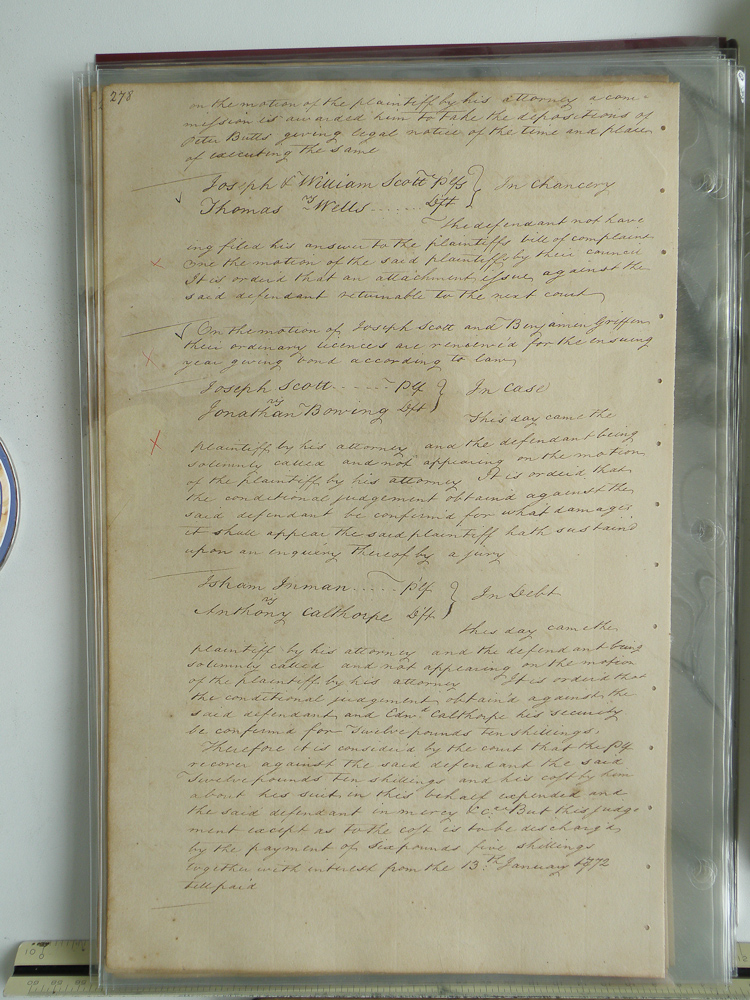 278
on the motion of the plaintiff by his attorney a com=
mission is awarded him to take the depositions of
Peter Butts giving legal notice of the time and place
of executing the same
Joseph & William Scott Plfs } In Chancery
vs
Thomas Wells ...... Dft
The defendant not have
ing filed his answer to the plaintiffs bill of complaint
One the motion of the said plaintiffs by their council
It is orderd that an attachment issue against the
said defendant returnable to the next court
On the motion of Joseph Scott and Benjamin Griffin
their ordinary licences are renewed for the ensuing
year giving bond according to law
Joseph Scott ..... Plf } In Case
vs
Jonathan Bowing Dft
This day came the
plaintiff by his attorney and the defendant being
solemnly called and not appearing on the motion
of the plaintiff by his attorney It is orderd that
the conditional judgement obtaind against the
said defendant be confirmd for what damages
it shall appear the said plaintiff hath sustaind
upon an enquiery thereof by a jury
Isham Inman ..... Plf } In Debt
vs
Anthony Calthorpe Dft
this day came the
plaintiff by his attorney and the defendant being
solemnly called and not appearing on the motion
of the plaintiff by his attorney It is orderd that
the conditional judgement obtain'd against the
said defendant and Edwd Calthorpe his security
be confirmed for Twelve pounds ten shillings.
Therefore it is consider'd by the court that the Plf
recover against the said defendant the said
Twelve pounds ten shillings and his cost by him
about his suit in this behalf expended and
the said defendant in mercy &c. But this judge
ment except as to the cost is to be discharg'd
by the payment of Six pounds five shillings
together with interest from the 13th January 1772
till paid
10